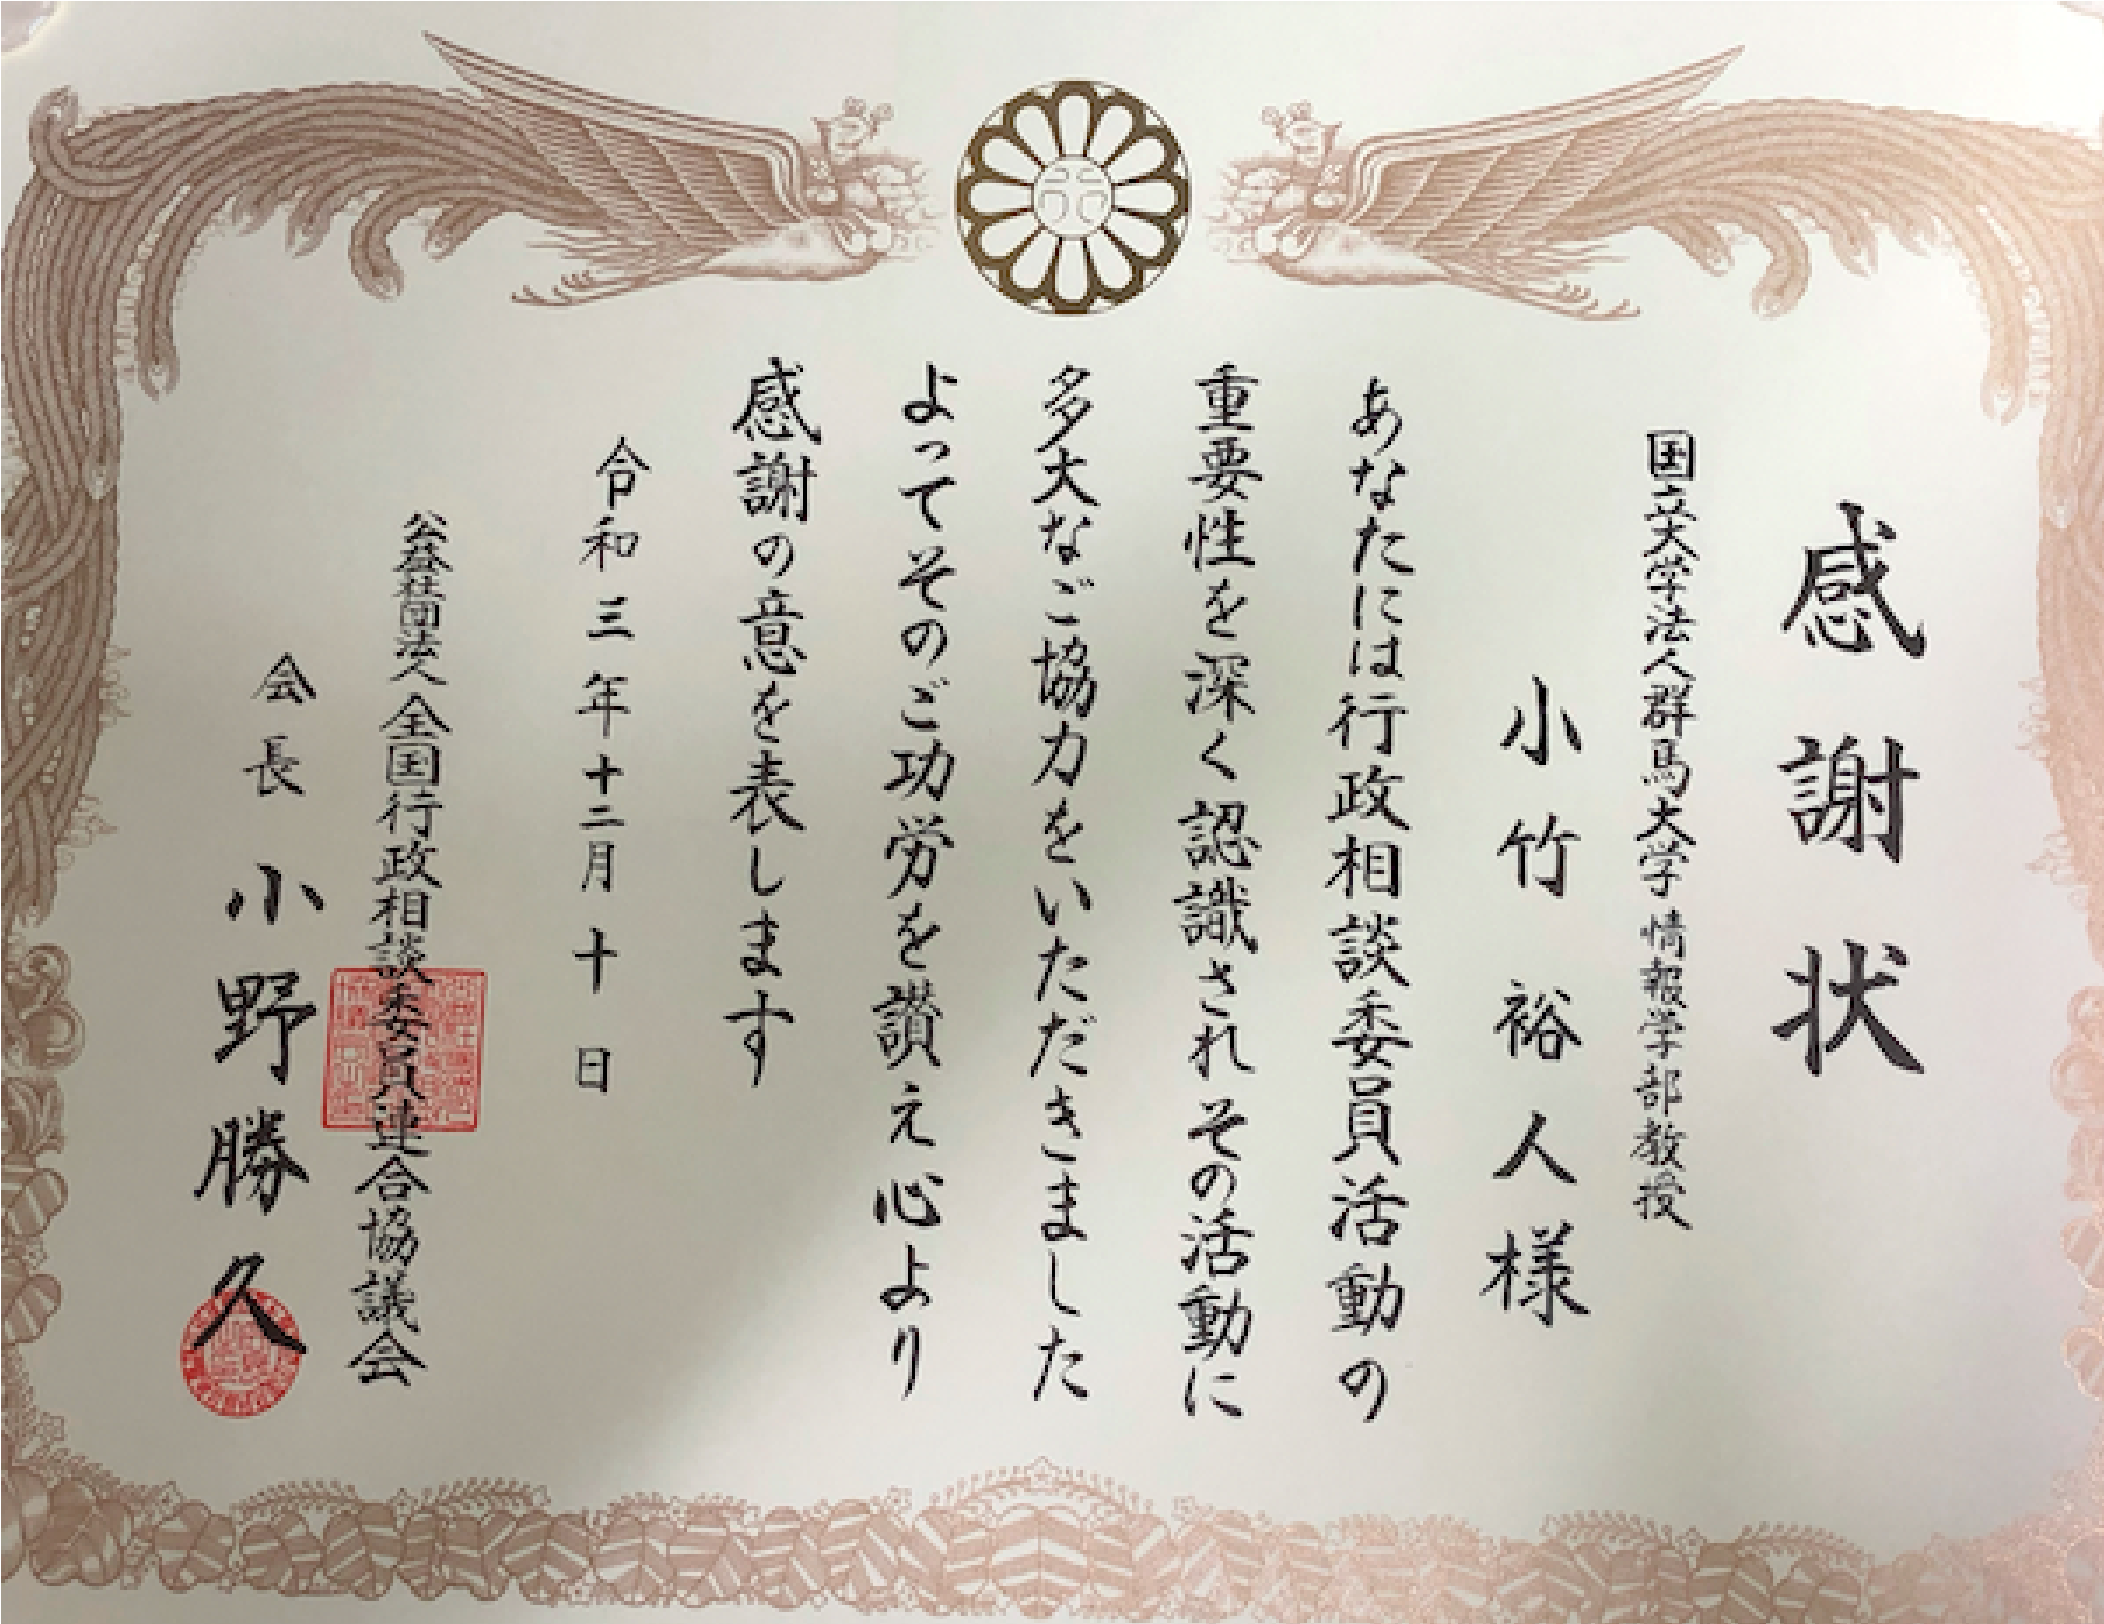 感謝状
国立大学法人群馬大学情報学部教授
小竹裕人様
あなたには行政相談委員活動の
重要性を深く認識されその活動に
多大なご協力をいただきました
よってそのご功労を讃え心より
感謝の意を表します
令和三年十二月十日
公益社団法人全国行政相談委員連合協議会
会長小野勝久